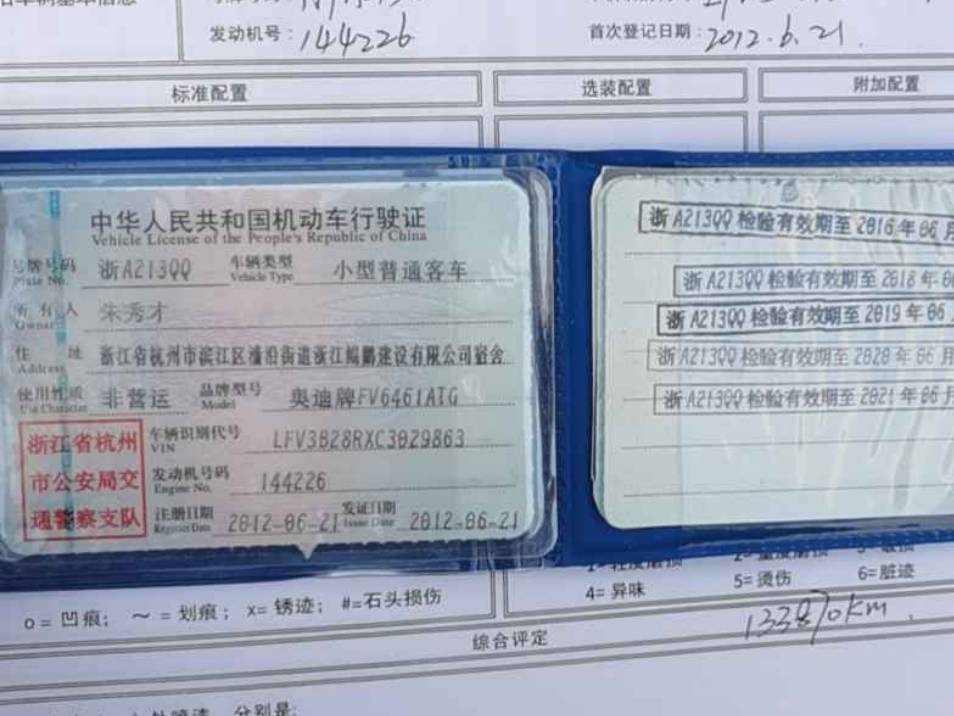 发动机号：144226
首次登记日期：2012.6.21.
标准配置
选装配置
附加配置
中华人民共和国机动车行驶证
Vehicle License of the People's Republic of China
号牌号码 Plate No. 浙A213QQ 车辆类型 Vehicle Type 小型普通客车
所有人 Owner 朱秀才
住址 Address 浙江省杭州市滨江区浦沿街道浙江鲲鹏建设有限公司宿舍
使用性质 Use Character 非营运 品牌型号 Model 奥迪牌FV6461ATG
车辆识别代号 VIN LFV3B28RXC3029863
发动机号码 Engine No. 144226
注册日期 Register Date 2012-06-21 发证日期 Issue Date 2012-06-21
浙江省杭州
市公安局交
通警察支队
浙A213QQ检验有效期至2016年06月
浙A213QQ检验有效期至2018年06
浙A213QQ检验有效期至2019年06
浙A213QQ检验有效期至2020年06月
浙A213QQ检验有效期至2021年06月
4=异味
5=烫伤
6=脏迹
o=凹痕； ～=划痕； x=锈迹； #=石头损伤
综合评定
分别是: